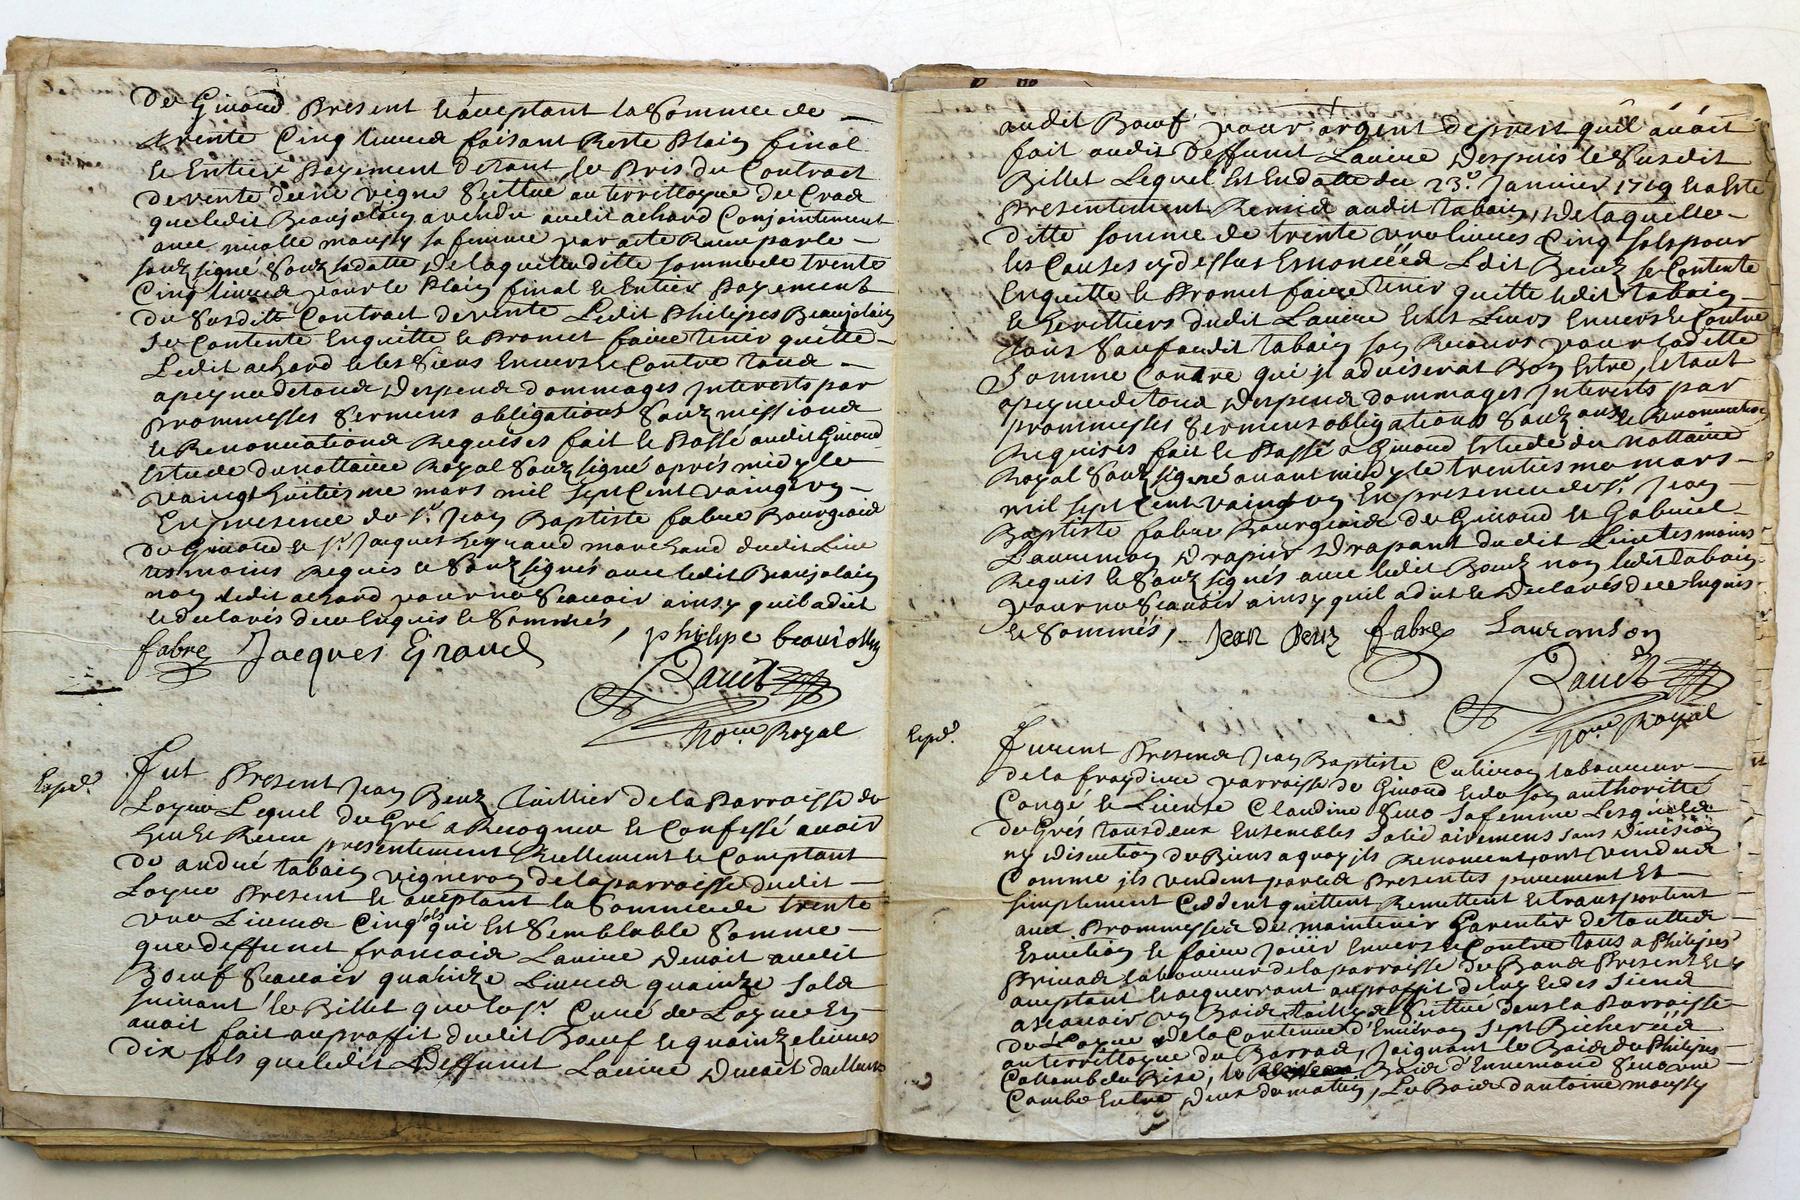 de Givord Present et acceptant la Somme de
trente Cinq livres faisant Reste Plain final
et Entier Payement de tout le Pris du Contract
de vente d'une vigne Scittue au territtoyre de Cras
que ledit Beaujolain a vendu audit achard Conjointement
avec mousy sa femme par acte Receu par le
souz signé Souz sa datte de laquelle ditte somme de trente
Cinq livres pour le Plain final et Entier Payement
du Susditt Contract de vente Ledit Philipes Beaujolain
se Contente En quitte et Promet faire tenir quitte
Ledit achard et les Siens Envers et Contre tous
a peyne de tous Despens dommages Interests par
Prommesses Sermens obligations Souz missions
et Renonciations Requises fait et Passé audit Givord
Estude du nottaire Royal Souz signé aprés midy le
vaingt huitiesme mars mil sept Cent vaingt un
En presence de Sr. Jean Baptiste fabre Bourgeois
de Givord et Sr. Jacques marchand dudit Lieu
tesmoins Requis et Souz signés avec ledit Beaujolain
non ledit achard pour ne Scavoir ainsy quil a dit
et declarés de ce Enquis et Sommés,
philipe beaujollin
fabre Jacques Giraud
no.re Royal
Exped.
Fut Present Jean Benz Taillier de la Parroisse de
Loyre Lequel de Gré a Recognu et Confessé avoir
heu et Receu presentement Reellement et Comptant
de andré tabain vigneron de la parroisse dudit
Loyre Present et acceptant la Somme de trente
une Livres Cinq sols qui Est Semblable Somme
que deffunct francois Lavive Devoit audit
Scavoir quatnze Livres quainze Sols
suivant le Billet que le Sr. Curé de Loyre En
avoit fait au proffit dudit et quainze livres
dix sols que ledit Deffunct Lavive Devoit dailleurs
audit pour argent deprest quil avoit
fait audit Deffunct Lavive Despuis le Susdit
Billet Lequel Est En datte du 23e. Janvier 1719 et a Esté
Presentement Remis audit tabain, De laquelle
ditte somme de trente une livres Cinq sols pour
les Causes cy dessus Enoncéés Ledit Benz se Contente
En quitte et Promet faire tenir quitte ledit tabain
et heritiers dudit Lavive et les Leurs Envers et Contre
tous Sauf audit tabain son Recours pour laditte
Somme Contre qui jl adviserat Bon Estre, le tout
a peyne de tous Despens dommages Interests par
prommesses Sermens obligations Souz et Renonciations
Requises fait et Passé a Givord Estude du nottaire
Royal Souz signé avant midy le trentiesme mars
mil sept Cent vaingt un En presence de Sr. Jean
Baptiste fabre Bourgeois de Givord et Gabriel
Drapier Drapant dudit Lieu tesmoins
Requis et Souz signés avec ledit Benz non ledit tabain
pour ne Scavoir ainsy quil a dit et declarés de ce Enquis
et Sommés,
Jean Benz fabre Lauranson
no.re Royal
Exped.
Furent Presens Jean Baptiste laboureur
de la fraydiere parroisse de Givord et de son authoritté
Congé et Licente Claudine Seno Sa femme Lesquels
de Grés tous deux Ensembles Solidairemens sans Division
ny Discution de Biens a quoy jls Renoncent, ont vendus
Comme jls vendent par les Presentes purement Et
simplement Ceddent quittent Remettent et transportent
avec Prommesses de maintenir Garentir de touttes
Evictions et faire Jouir Envers et Contre tous a Philipes
laboureur de la parroisse de Present et
acceptant et acquerrant au proffit de luy et des Siens
a scavoir un Bois taillys Scittué dans la Parroisse
de Loyre de la Contenue d'Environ sept Bicheréés
au territtoyre du Barras, Joignant le Bois de Philipes
de Bise, le Bois d'Ennemond Seno une
Combe Entre Deux de matin, Le Bois d'antoine mousy